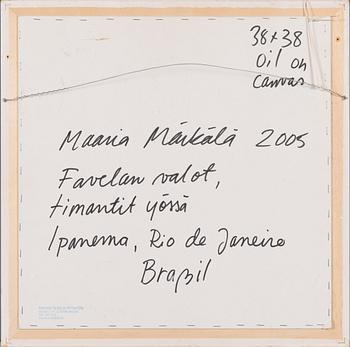 38×38
Oil on
canvas
Maaria Märkälä 2005
Favelan valot,
timantit yössä
Ipanema, Rio de Janeiro
Brazil